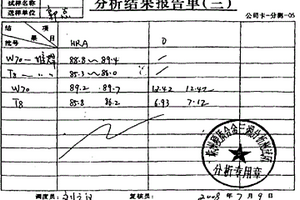 试样名称
送样单位
分析结果报告单(三)
公司卡-分测-05
结 项
果 目
批号
HRA D
W70 88.8~89.4 /
T8 85.3~86.0 /
W70 89.2 89.7 12.42 12.47
T8 85.8 86.2 6.93 7.12
分析专用章
调度员: 复核员: 2008年7月9日